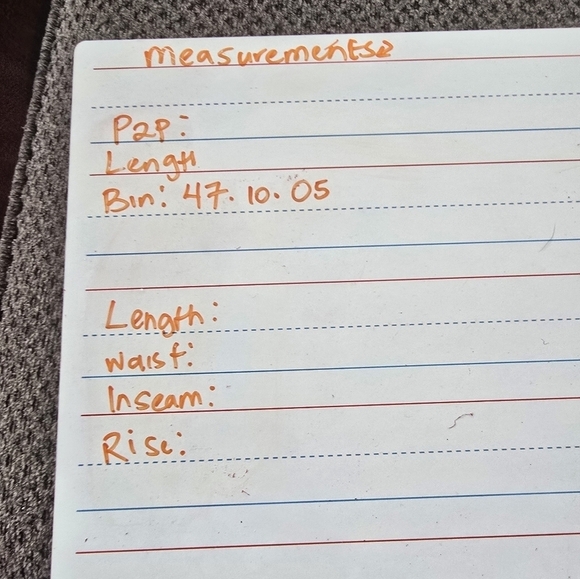 Measurements
P2P:
Length
Bin: 47.10.05
Length:
Waist:
Inseam:
Rise: